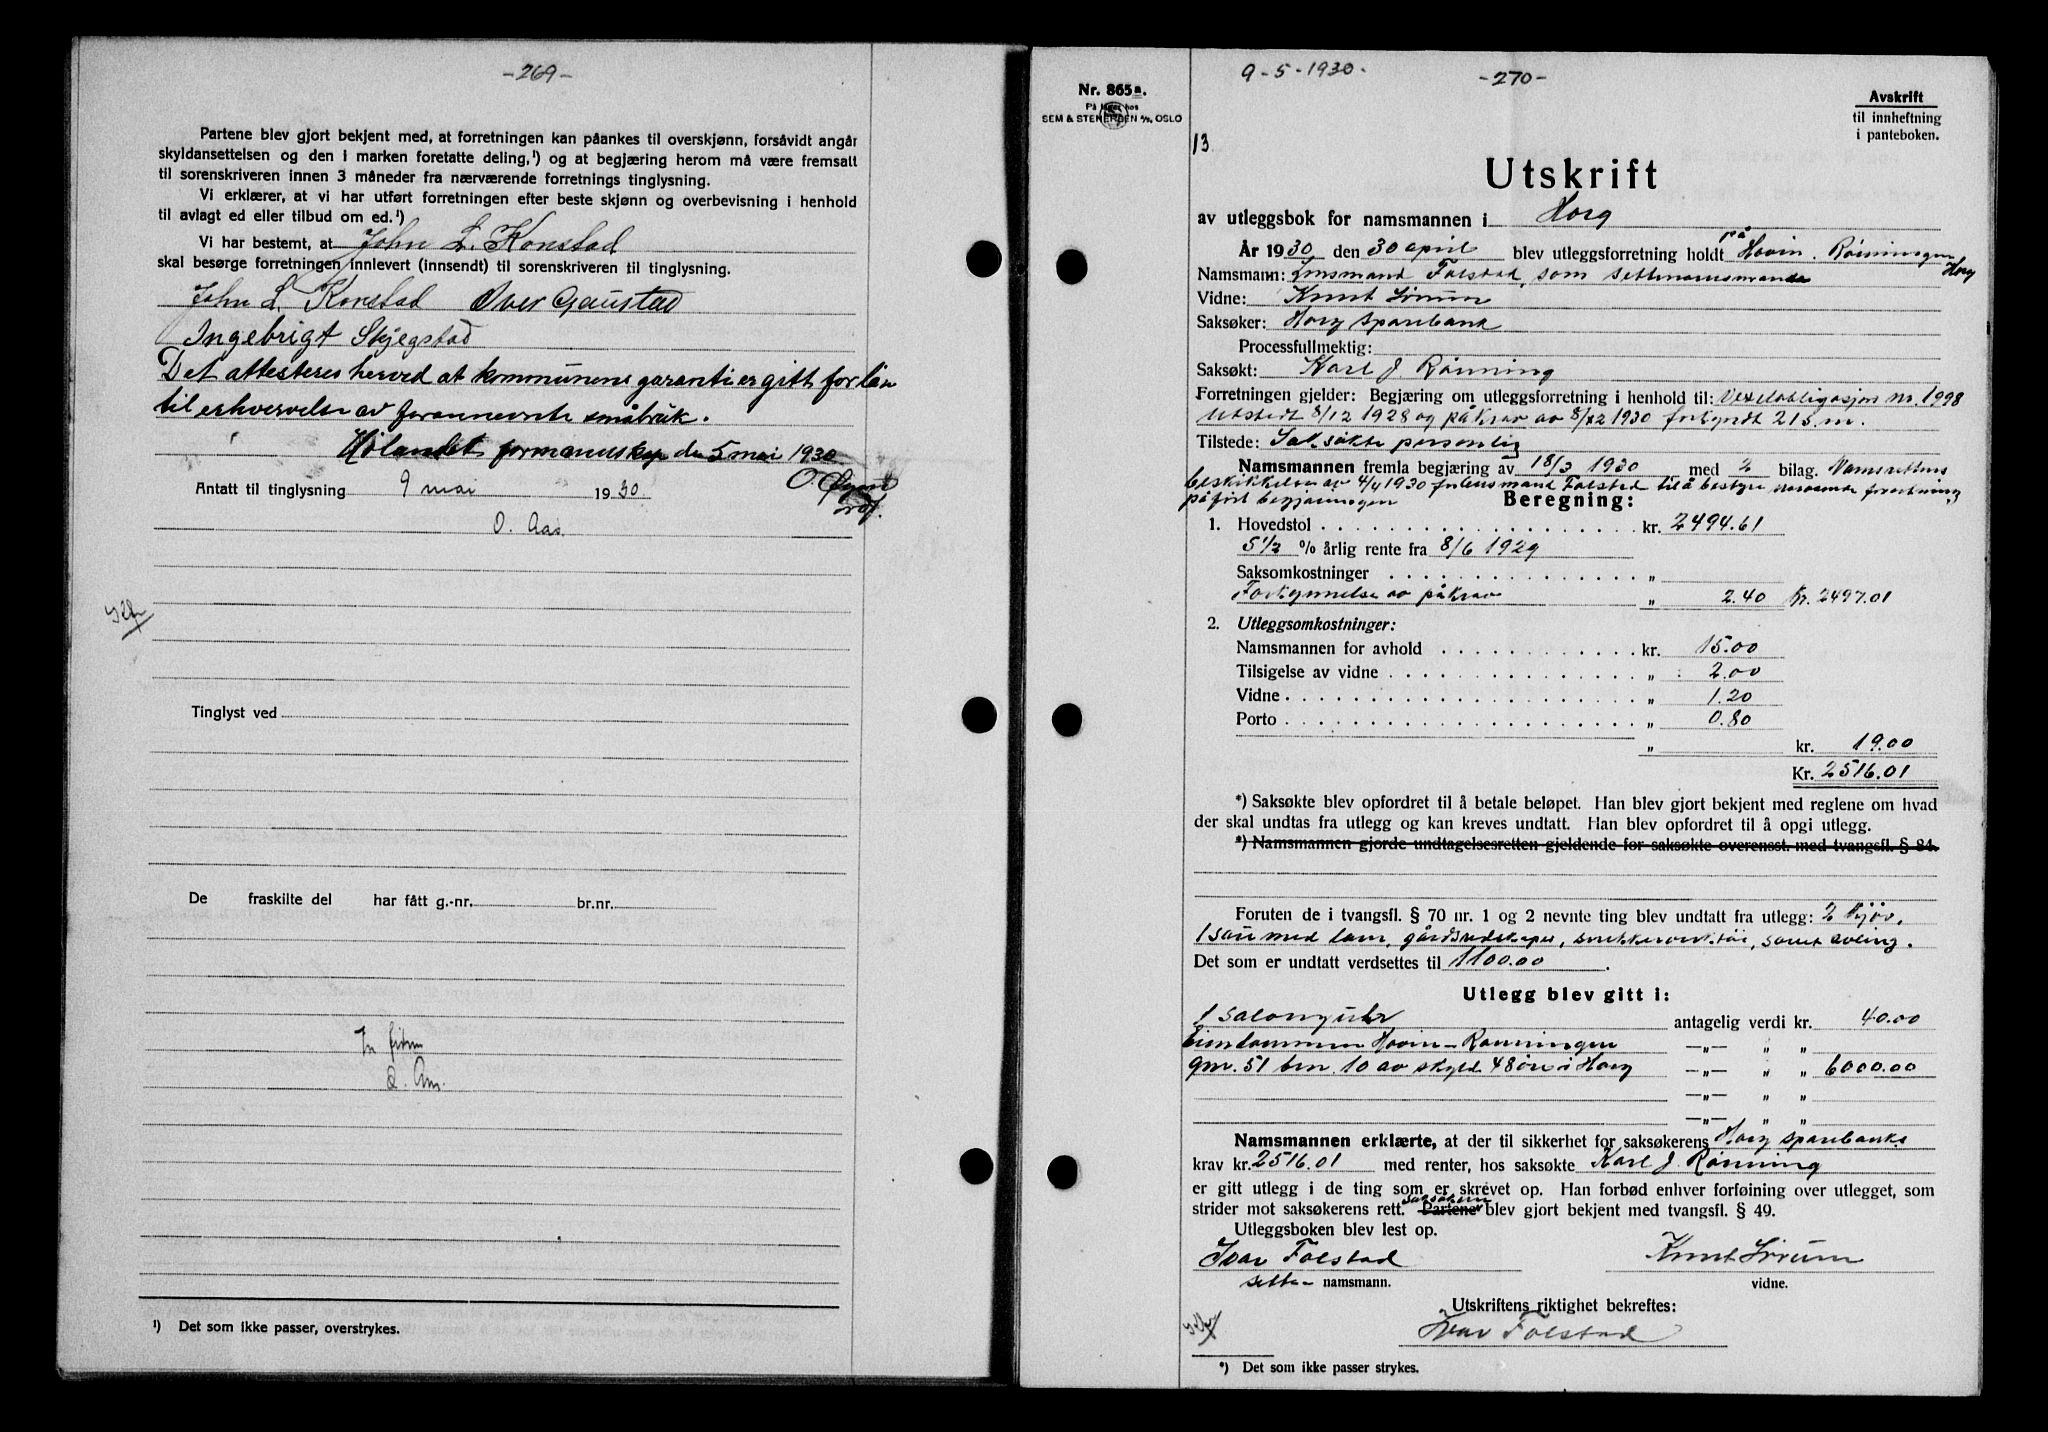 -269-
Partene blev gjort bekjent med, at forretningen kan påankes til overskjønn, forsåvidt angår
skyldansettelsen og den i marken foretatte deling,¹) og at begjæring herom må være fremsatt
til sorenskriveren innen 3 måneder fra nærværende forretnings tinglysning.
Vi erklærer, at vi har utført forretningen efter beste skjønn og overbevisning i henhold
til avlagt ed eller tilbud om ed.¹)
Vi har bestemt, at John L. Konstad
skal besørge forretningen innlevert (innsendt) til sorenskriveren til tinglysning.
John L. Konstad Iver Gaustad
Ingebrigt Skjegstad
Det attesteres herved at kommunens garanti er gitt for lån
til erhvervelse av forannevnte småbruk.
Hølandet formannskap den 5 mai 1930
O.
Antatt til tinglysning 9 mai 1930
O. Aas.
Tinglyst ved
De fraskilte del har fått g.-nr. br.nr.
¹) Det som ikke passer, overstrykes.
Nr. 865a.
På lager hos
SEM & STENERSEN A/S, OSLO
9-5-1930.
-270-
Avskrift
til innheftning
i panteboken.
13
Utskrift
av utleggsbok for namsmannen i Horg
År 1930 den 30 april blev utleggsforretning holdt på Hovin. Rønningen Horg
Namsmann: Lensmand Folstad, som settenamsmand
Vidne: Knut Sørum
Saksøker: Horg sparebank
Processfullmektig:
Saksøkt: Karl J Rønning
Forretningen gjelder: Begjæring om utleggsforretning i henhold til: Vexelobligasjon nr. 1998
utstedt 8/12 1928 og påkrav av 1930 forkyndt
Tilstede: Saksøkte personlig
Namsmannen fremla begjæring av 18/3 1930 med 2 bilag. Namsrettens
beskikkelse av 4/4 1930 for lensmand Folstad til å bestyre forretning
påført begjæringen
Beregning:
1. Hovedstol kr. 2494.61
5 1/2 % årlig rente fra 8/6 1929
Saksomkostninger „
Forkynnelse av påkrav „ 2.40 Kr. 2497.01
2. Utleggsomkostninger:
Namsmannen for avhold kr. 15.00
Tilsigelse av vidne „ 2.00
Vidne „ 1.20
Porto „ 0.80
„ kr. 19.00
Kr. 2516.01
*) Saksøkte blev opfordret til å betale beløpet. Han blev gjort bekjent med reglene om hvad
der skal undtas fra utlegg og kan kreves undtatt. Han blev opfordret til å opgi utlegg.
*) Namsmannen gjorde undtagelsesretten gjeldende for saksøkte overensst. med tvangsfl. § 84.
Foruten de i tvangsfl. § 70 nr. 1 og 2 nevnte ting blev undtatt fra utlegg: 2 kjør,
1 sau med lam, gårdsredskaper, snekkerverktøi, samt avling.
Det som er undtatt verdsettes til 1100.00.
Utlegg blev gitt i:
1 salonguhr antagelig verdi kr. 40.00
Eiendommen Hovin-Rønningen —„— „ „
gnr. 51 bnr. 10 av skyld 48 øre i Horg —„— „ „ 6000.00
—„— „ „
—„— „ „
Namsmannen erklærte, at der til sikkerhet for saksøkerens Horg sparebanks
krav kr. 2516.01 med renter, hos saksøkte Karl J. Rønning
er gitt utlegg i de ting som er skrevet op. Han forbød enhver forføining over utlegget, som
strider mot saksøkerens rett. Partene saksøkeren blev gjort bekjent med tvangsfl. § 49.
Utleggsboken blev lest op.
Ivar Folstad Knut Sørum
sette- namsmann. vidne.
Utskriftens riktighet bekreftes:
Ivar Folstad
*) Det som ikke passer strykes.